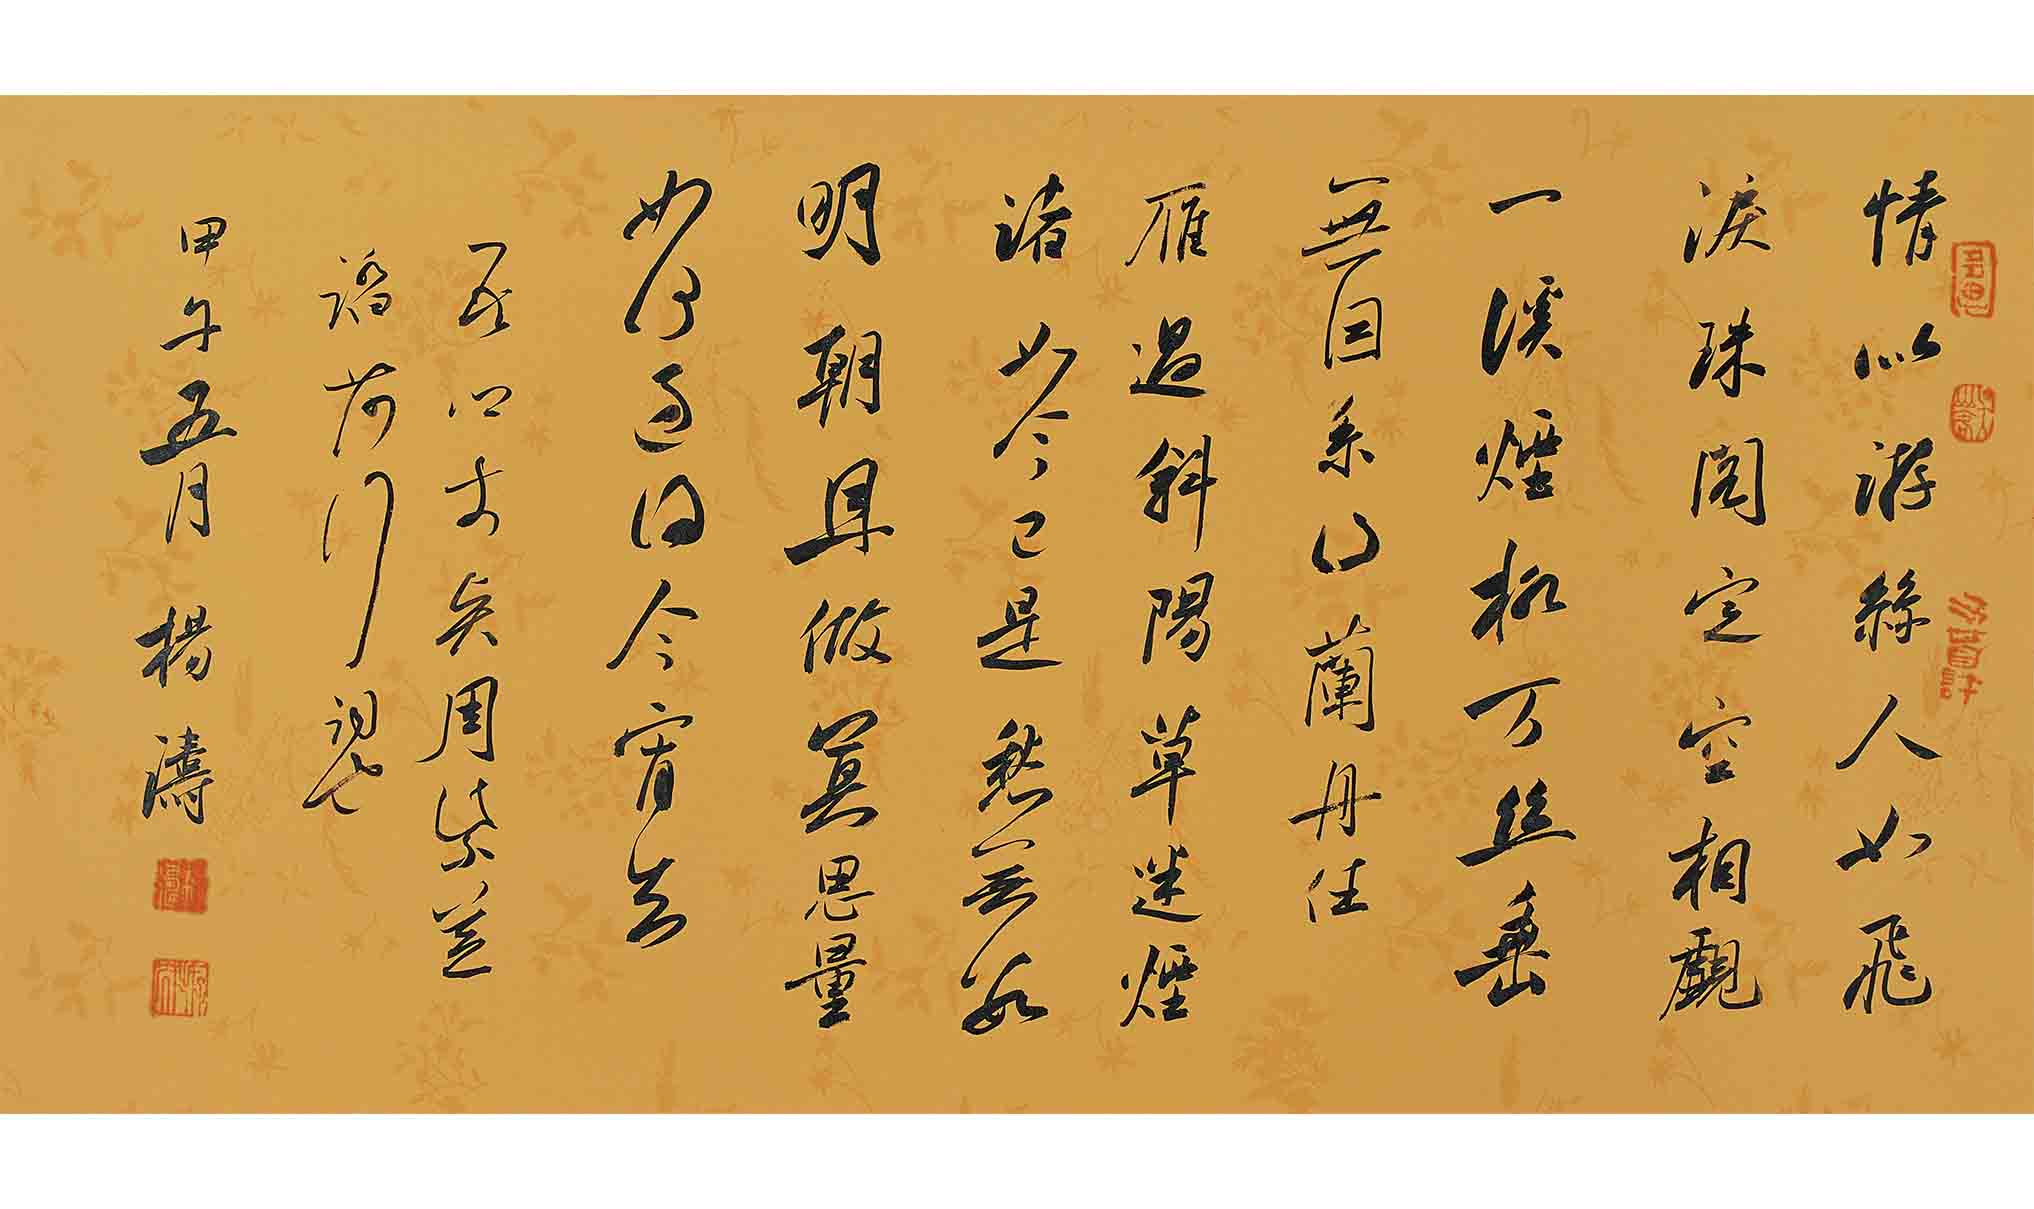 情似游絲人如飛
淚珠閣定空相覷
一溪煙柳万丝垂
無因系得蘭舟住
雁過斜陽草迷煙
渚如今已是愁無數
明朝且做莫思量
如何過得今宵去
右河十矣周紫芝
踏莎行詞也
甲午五月楊濤